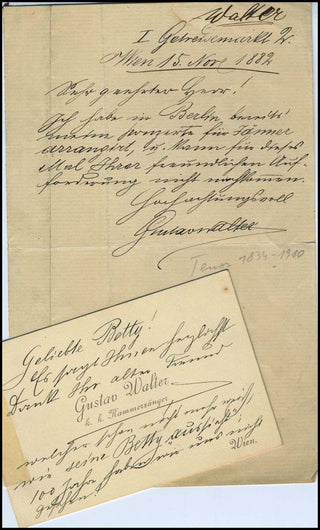 Walter
I Getreidemarkt 2.
Wien 15. Nov. 1882
Sehr geehrter Herr!
Ich habe in Berlin bereits
meine Konzerte für Jänner
arrangirt, u. kann für dieses
Mal Ihrer freundlichen Auf-
forderung nicht nachkommen.
Hochachtungsvoll
Gustav Walter
Tenor 1834-1910
Geliebte Betty!
Es sagt Ihnen herzlichst
Dank Ihr alter Freund
Gustav Walter
k. k. Kammersänger
welcher schon nicht mehr weiß,
wie seine Betty aussieht!
100 Jahre haben wir uns nicht
gesehen!
Wien.